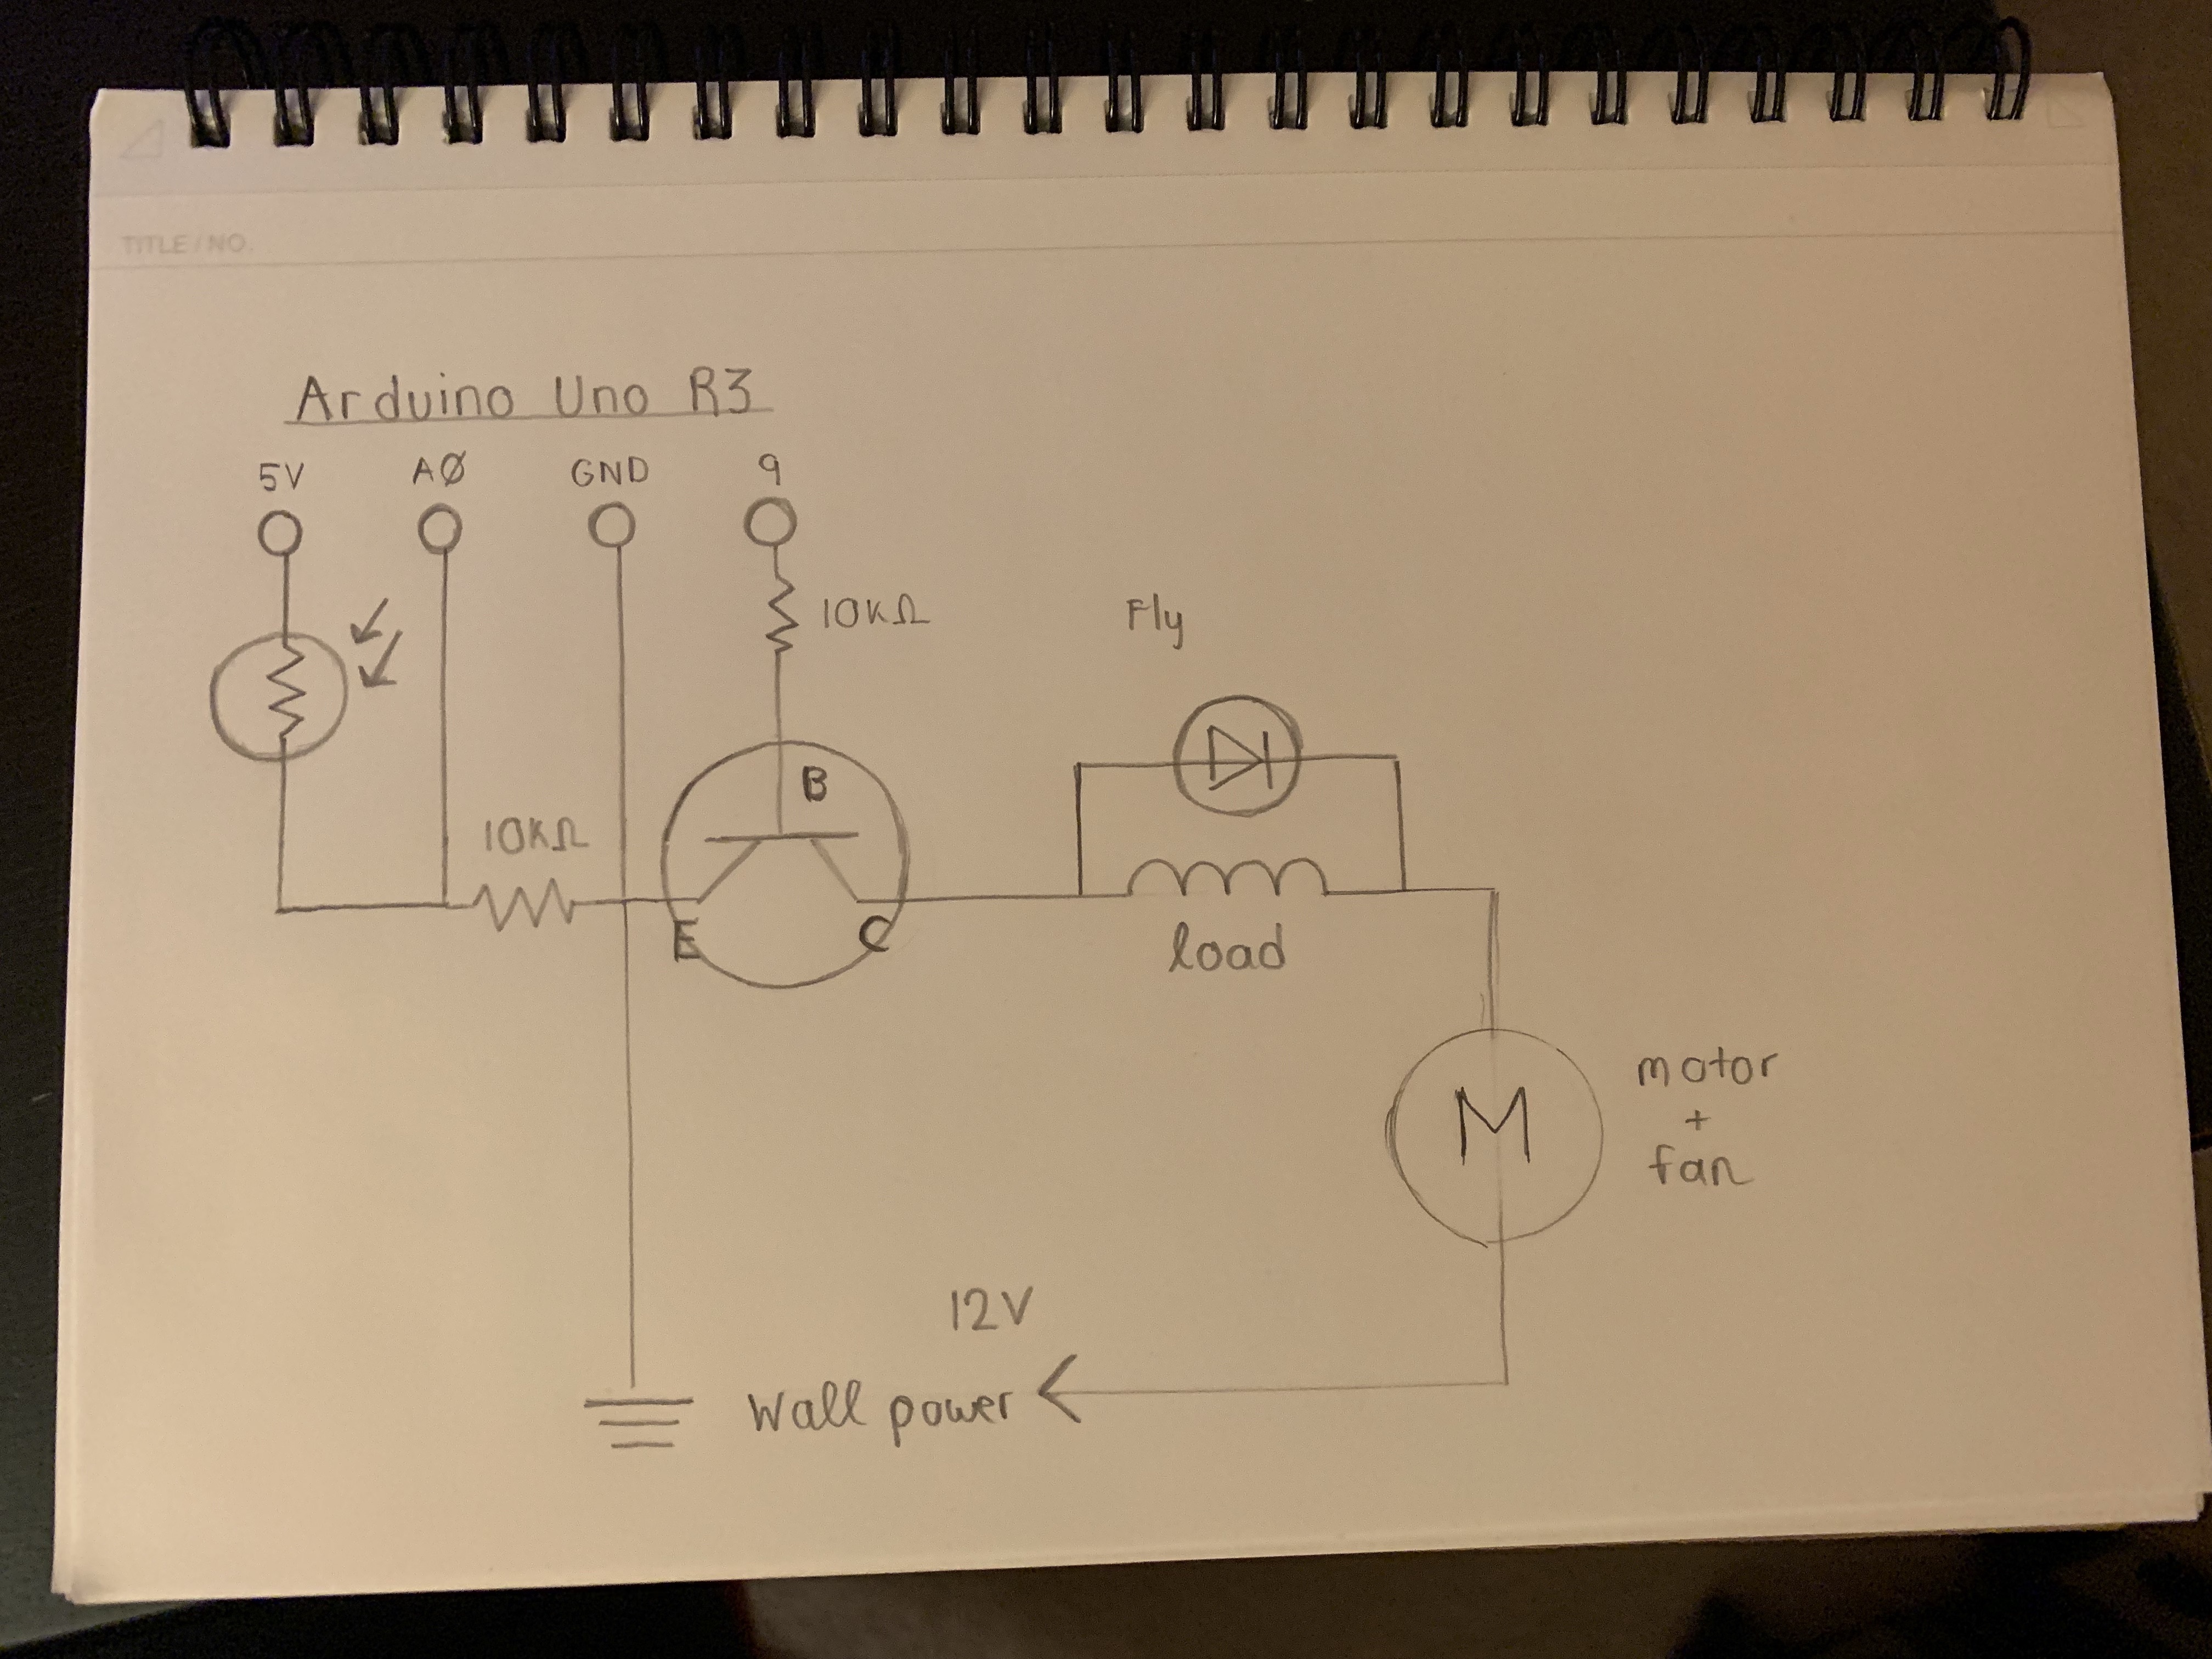 TITLE/NO.
Arduino Uno R3
5V AØ GND 9
10KΩ
Fly
B
10KΩ
E C
load
M
motor
+
fan
12V
Wall power